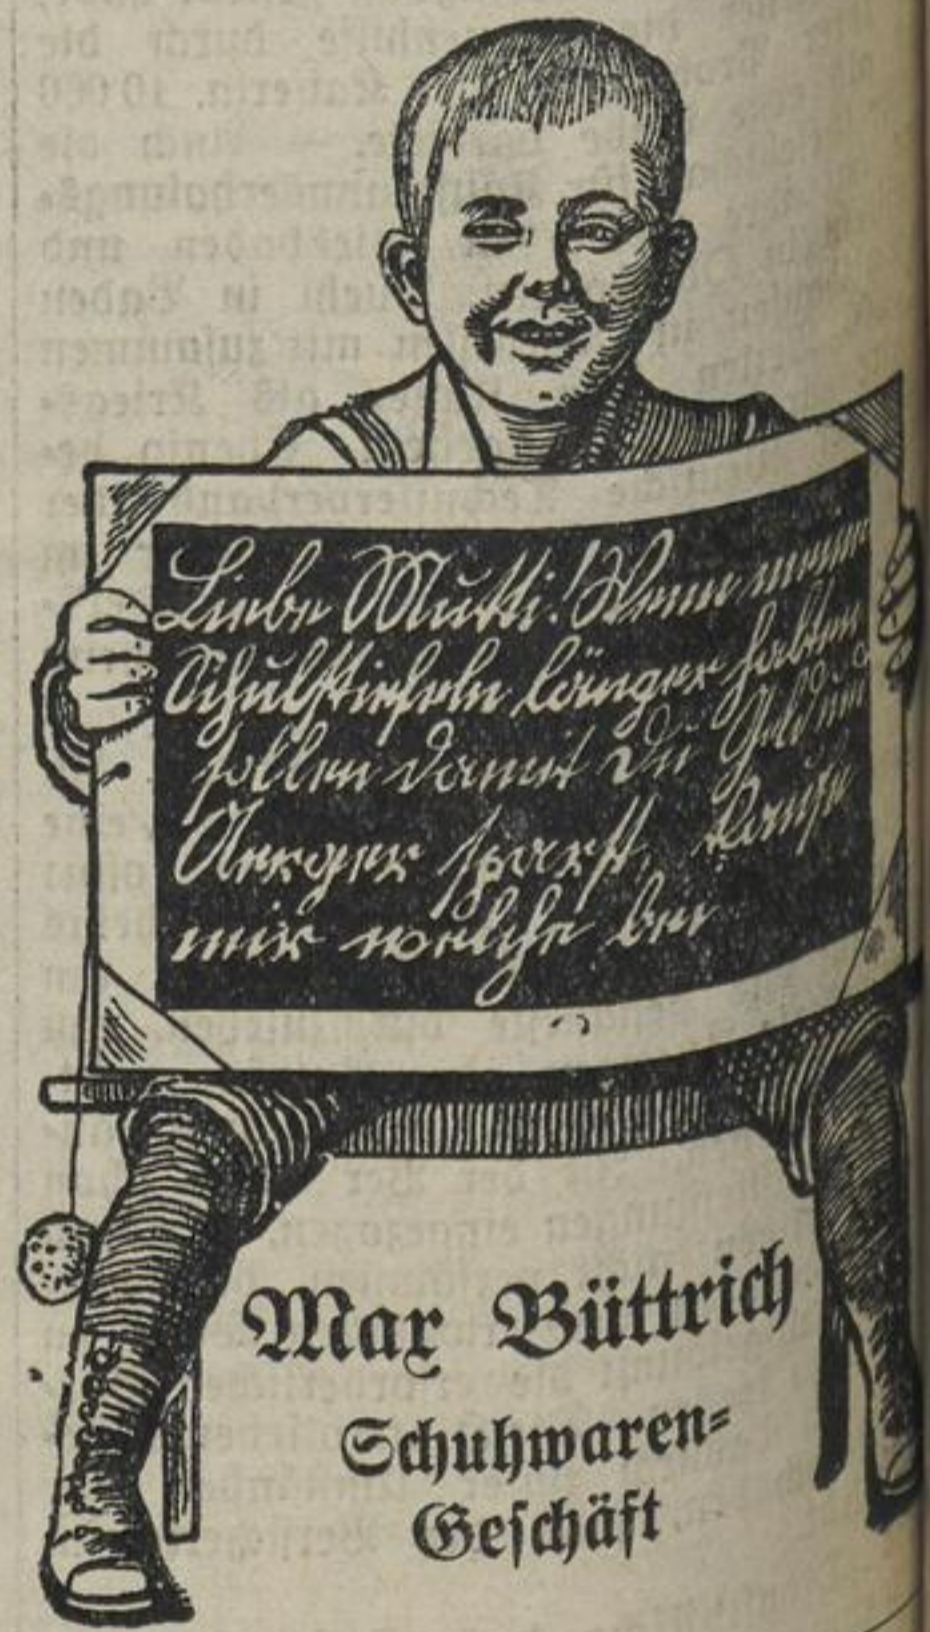 Liebe Mutti! Wenn meine
Schulstiefeln länger halten
sollen damit Du Geld und
Aerger sparst, kaufe
mir welche bei
Max Büttrich
Schuhwaren-
Geschäft